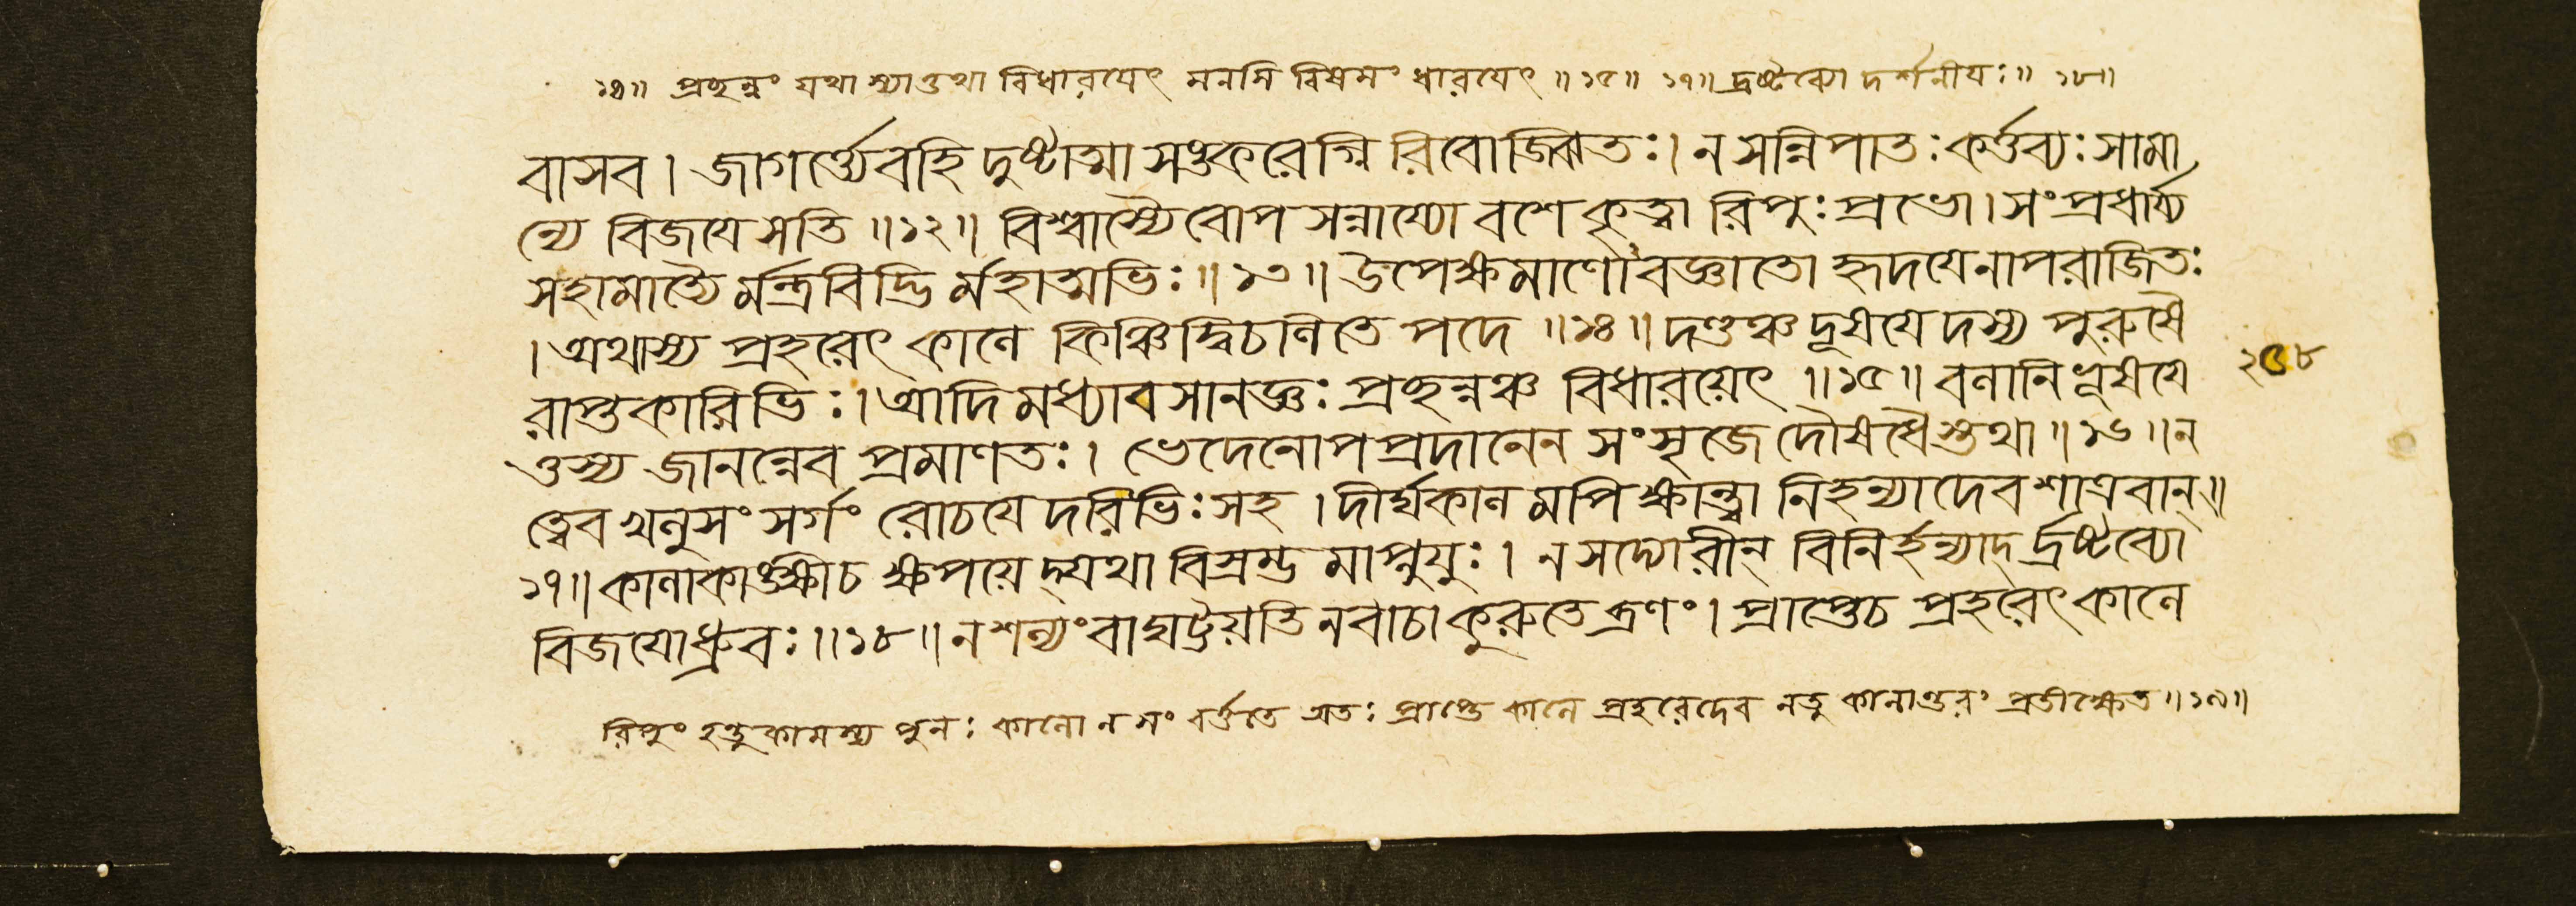 ১৪॥ প্রচ্ছন্নং যথা স্যাত্তথা বিধারয়েৎ মনসি বিষমং ধারয়েৎ ॥১৫॥ ১৭॥ দ্রষ্টব্যো দর্শনীয়ঃ॥ ১৮॥
বাসব । জাগর্ত্ত্যেবহি দুষ্টাত্মা সঙ্করেগ্নি রিবোজ্ঝিতঃ । ন সন্নিপাতঃ কর্ত্তব্যঃ সামা
ন্যে বিজয়ে সতি ॥১২॥ বিশ্বাস্যৈবোপ সন্নাম্যো বশে কৃত্বা রিপুঃ প্রভো । সংপ্রধার্য্য
সহামাত্যৈ র্মন্ত্রবিদ্ভি র্মহাত্মভিঃ ॥১৩॥ উপেক্ষমাণোঽবজ্ঞাতো হৃদয়েনাপরাজিতঃ
। অথাস্য প্রহরেৎ কালে কিঞ্চিদ্বিচলিতে পদে ॥১৪॥ দণ্ডঞ্চ দূষয়েদস্য পুরুষৈ
রাপ্তকারিভিঃ । আদি মধ্যাবসানজ্ঞঃ প্রচ্ছন্নঞ্চ বিধারয়েৎ ॥১৫॥ বলানি দূষয়ে
ত্তস্য জানন্নেব প্রমাণতঃ । ভেদেনোপপ্রদানেন সংসৃজে দৌষধৈস্তথা ॥১৬॥ ন
ত্বেব খলুসং সর্গং রোচয়ে দরিভিঃ সহ । দীর্ঘকাল মপি ক্ষান্ত্বা নিহন্যাদেব শাত্রবান্ ॥
১৭॥ কালাকাঙ্ক্ষীচ ক্ষপয়েদ্যথা বিস্রম্ভ মাপ্নুয়ুঃ । ন সদ্যোরীন্ বিনির্হন্যাদ্ দ্রষ্টব্যো
বিজয়োধ্রুবঃ ॥১৮॥ ন শল্যংবা ঘট্টয়তি নবাচা কুরুতে ব্রণং । প্রাপ্তেচ প্রহরেৎ কালে
২৫৮
রিপুং হন্তুকামস্য পুনঃ কালো ন সং বর্ত্ততে অতঃ প্রাপ্তে কালে প্রহরেদেব নতু কালান্তরং প্রতীক্ষেত ॥১৯॥